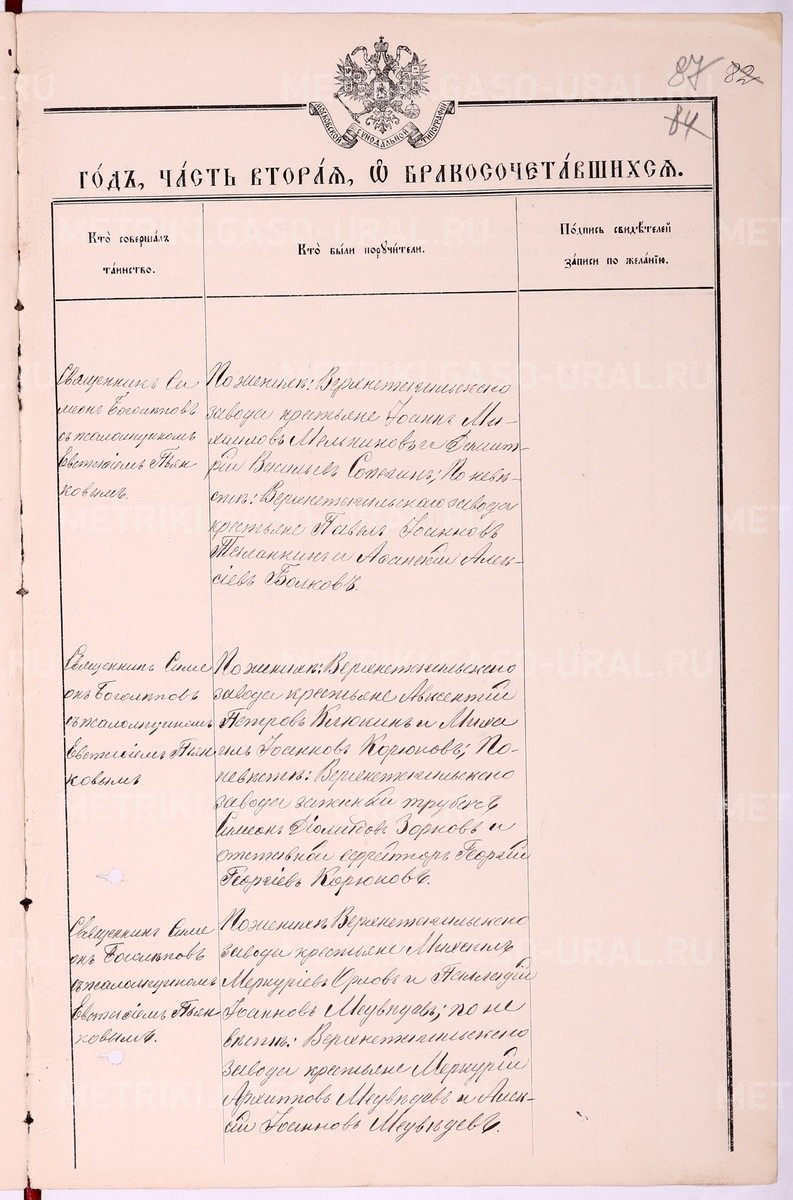 87 82
84
МОСКОВСКОЙ СѴНОДАЛЬНОЙ ТИПОГРАФІИ
ГО́ДЪ, ЧА́СТЬ ВТОРА́Я, Ѽ БРАКОСОЧЕТА́ВШИХСЯ.
Кто̀ соверша́лъ
та́инство.
Кто̀ бы́ли пору́чи́тели.
По́дпись свидѣ́телей
за́писи по жела́нію.
Священникъ Си
меонъ Боголѣповъ
съ псаломщикомъ
Евстаѳіемъ Пьян-
ковымъ.
По женихѣ: Верхнетагильскаго
завода крестьяне Іоаннъ Ми-
хаиловъ Мельниковъ и Димит-
рій Васильевъ Сопегинъ; По невѣ-
стѣ: Верхнетагильскаго завода
крестьяне Павелъ Іоанновъ
и Алек-
сіевъ Волковъ.
Священникъ Симе
онъ Боголѣповъ
съ псаломщикомъ
Евстаѳіемъ Пьян
ковымъ.
По женихѣ: Верхнетагильскаго
завода крестьяне Авксентій
Петровъ Клюкинъ и Миха
илъ Іоанновъ Корюковъ; По-
невѣстѣ: Верхнетагильскаго
завода
Симеонъ Діомидовъ Зорковъ и
отставной ефрейторъ Георгій
Георгіевъ Корюковъ.
Священникъ Симе
онъ Боголѣповъ
съ псаломщикомъ
Евстаѳіемъ Пьян
ковымъ.
По женихѣ Верхнетагильскаго
завода крестьяне Михаилъ
Меркуріевъ Орловъ и
Іоанновъ Медвѣдевъ; по не
вѣстѣ: Верхнетагильскаго
завода крестьяне Меркурій
Архиповъ Медвѣдевъ и Алек-
сій Іоанновъ Медвѣдевъ.
METRIKI.GASO-URAL.RU